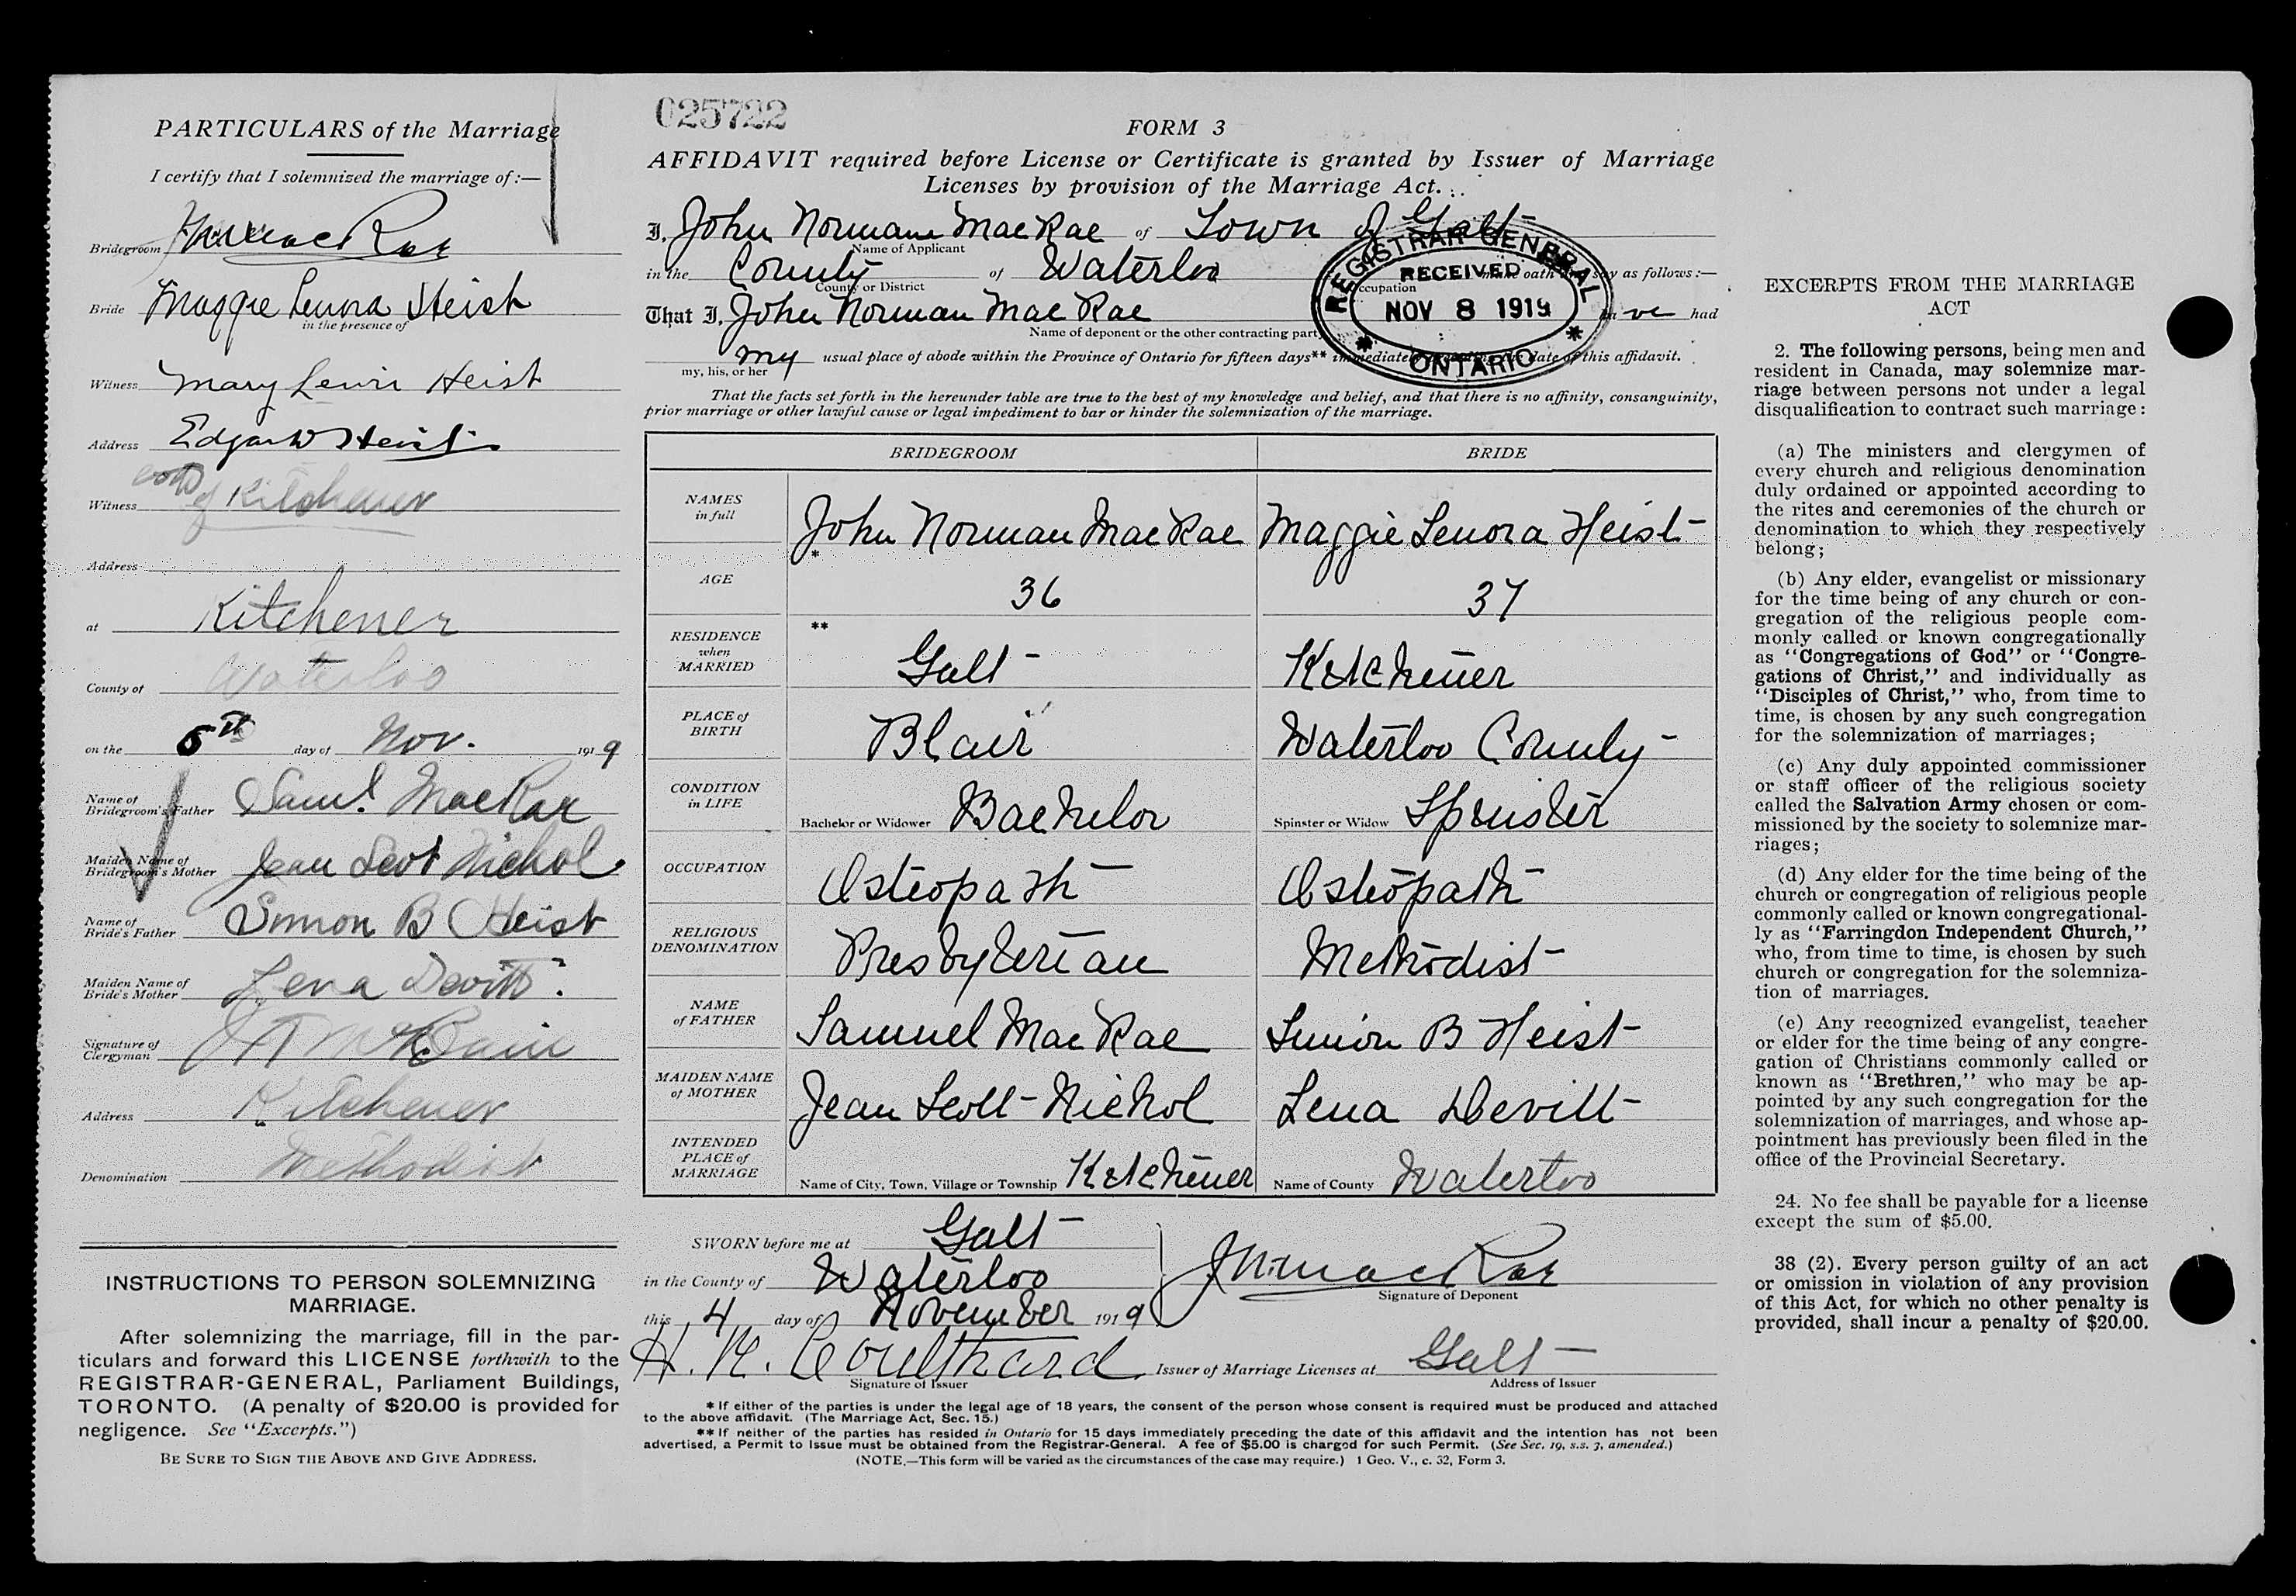 PARTICULARS of the Marriage
I certify that I solemnized the marriage of:—
Bridegroom JN MacRae
Bride Maggie Lenora Heist
in the presence of
Witness Mary Lewis Heist
Address Edgar W Heist
Witness both of Kitchener
Address
at Kitchener
County of Waterloo
on the 5th day of Nov. 1919
Name of Bridegroom's Father Saml. MacRae
Maiden Name of Bridegroom's Mother Jean Scot Nichol
Name of Bride's Father Simon B Heist
Maiden Name of Bride's Mother Lena Devitt.
Signature of Clergyman
Address Kitchener
Denomination Methodist
INSTRUCTIONS TO PERSON SOLEMNIZING
MARRIAGE.
After solemnizing the marriage, fill in the par-
ticulars and forward this LICENSE forthwith to the
REGISTRAR-GENERAL, Parliament Buildings,
TORONTO. (A penalty of $20.00 is provided for
negligence. See "Excerpts.")
BE SURE TO SIGN THE ABOVE AND GIVE ADDRESS.
025722
FORM 3
AFFIDAVIT required before License or Certificate is granted by Issuer of Marriage
Licenses by provision of the Marriage Act.
I, John Norman MacRae of Town of Galt
Name of Applicant
in the County of Waterloo make oath and say as follows:—
County or District Occupation
That I, John Norman Mac Rae have had
Name of deponent or the other contracting party
my usual place of abode within the Province of Ontario for fifteen days** immediately preceding the date of this affidavit.
my, his, or her
REGISTRAR GENERAL
RECEIVED
NOV 8 1919
* ONTARIO *
That the facts set forth in the hereunder table are true to the best of my knowledge and belief, and that there is no affinity, consanguinity,
prior marriage or other lawful cause or legal impediment to bar or hinder the solemnization of the marriage.
BRIDEGROOM BRIDE
NAMES in full John Norman MacRae Maggie Lenora Heist
AGE * 36 37
RESIDENCE when MARRIED ** Galt Kitchener
PLACE of BIRTH Blair Waterloo County
CONDITION in LIFE Bachelor or Widower Bachelor Spinster or Widow Spinster
OCCUPATION Osteopath Osteopath
RELIGIOUS DENOMINATION Presbyterian Methodist
NAME of FATHER Samuel MacRae Simon B Heist
MAIDEN NAME of MOTHER Jean Scott Nichol Lena Devitt
INTENDED PLACE of MARRIAGE Name of City, Town, Village or Township Kitchener Name of County Waterloo
SWORN before me at Galt
in the County of Waterloo JN MacRae
Signature of Deponent
this 4 day of November 1919
H. K. Coulthard Issuer of Marriage Licenses at Galt
Signature of Issuer Address of Issuer
* If either of the parties is under the legal age of 18 years, the consent of the person whose consent is required must be produced and attached
to the above affidavit. (The Marriage Act, Sec. 15.)
** If neither of the parties has resided in Ontario for 15 days immediately preceding the date of this affidavit and the intention has not been
advertised, a Permit to Issue must be obtained from the Registrar-General. A fee of $5.00 is charged for such Permit. (See Sec. 19, s.s. 3, amended.)
(NOTE.—This form will be varied as the circumstances of the case may require.) 1 Geo. V., c. 32, Form 3.
EXCERPTS FROM THE MARRIAGE
ACT
2. The following persons, being men and
resident in Canada, may solemnize mar-
riage between persons not under a legal
disqualification to contract such marriage:
(a) The ministers and clergymen of
every church and religious denomination
duly ordained or appointed according to
the rites and ceremonies of the church or
denomination to which they respectively
belong;
(b) Any elder, evangelist or missionary
for the time being of any church or con-
gregation of the religious people com-
monly called or known congregationally
as "Congregations of God" or "Congre-
gations of Christ," and individually as
"Disciples of Christ," who, from time to
time, is chosen by any such congregation
for the solemnization of marriages;
(c) Any duly appointed commissioner
or staff officer of the religious society
called the Salvation Army chosen or com-
missioned by the society to solemnize mar-
riages;
(d) Any elder for the time being of the
church or congregation of religious people
commonly called or known congregational-
ly as "Farringdon Independent Church,"
who, from time to time, is chosen by such
church or congregation for the solemniza-
tion of marriages.
(e) Any recognized evangelist, teacher
or elder for the time being of any congre-
gation of Christians commonly called or
known as "Brethren," who may be ap-
pointed by any such congregation for the
solemnization of marriages, and whose ap-
pointment has previously been filed in the
office of the Provincial Secretary.
24. No fee shall be payable for a license
except the sum of $5.00.
38 (2). Every person guilty of an act
or omission in violation of any provision
of this Act, for which no other penalty is
provided, shall incur a penalty of $20.00.